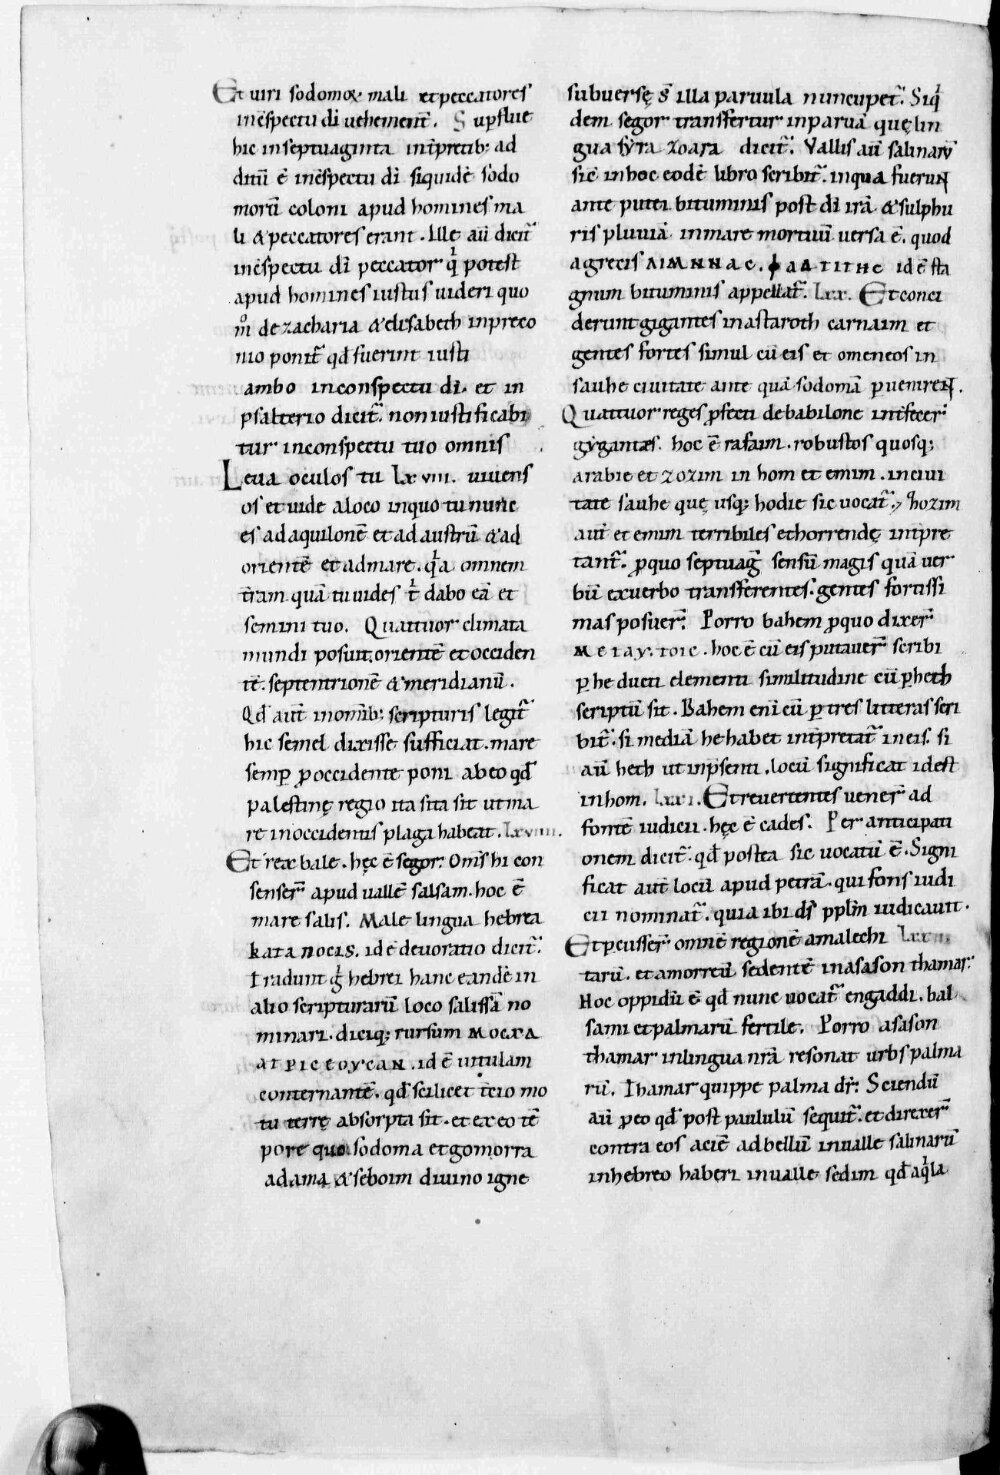 Et uiri sodomoꝝ mali et peccatores
in c̄spectu dī uehement᷒. Supflue
hic in septuaginta int̄p̄tib; ad
ditū ē in c̄spectu dī siquidē sodo
morū coloni apud homines ma
li & peccatores erant. Ille aūt dicit᷒
in c̄spectu dī peccator qͥ potest
apud homines iustus uideri quo
mͦ de zacharia & elisabeth in preco
nio ponit᷒ qđ fuerint iusti
ambo in conspectu dī. et in
psalterio dicit᷒. non iustificabi
tur in conspectu tuo omnis
Leua oculos tu lxviii. uiuens
os et uide a loco in quo tu nunc
es ad aquilonē et ad austrū & ad
orientē et ad mare. qͥa omnem
t̄ram quā tu uides tͥ dabo eā et
semini tuo. Quattuor climata
mundi posuit. orientē et occiden
tē. septentrionē & meridianū.
Qđ aūt in om̄ib; scripturis legit᷒
hic semel dixisse sufficiat. mare
semꝑ ꝓ occidente poni ab eo qđ
palestinę regio ita sita sit ut ma
re in occidentis plaga habeat. lxviiii.
Et rex bale. hęc ē segor. Om̄s hi con
senser̄ apud uallē salsam. hoc ē
mare salis. Male lingua hebrea
ΚΑΤΑΠΟCΙS. id ē deuoratio dicit᷒.
Tradunt gͥ hebrei hanc eandē in
alio scripturarū loco salissā no
minari. dicīq; rursum ΜΟCΧΑ
ΑΤΡΙCΤΟΥCΑΝ. id ē uitulam
conternantē. qđ scilicet t̄cio mo
tu terrę absorpta sit. et ex eo tē
pore quo sodoma et gomorra
adama & seboim diuino igne
subuersę s̄ illa paruula nuncupet᷒. Siqͥ
dem segor transfertur in paruā quę lin
gua syra zoara dicit᷒. Vallis aūt salinarū
sic̄ in hoc eodē libro scribit᷒. in qua fuerunt
ante putei bituminis post dī irā & sulphu
ris pluuiā in mare mortuū uersa ē. quod
a grecis ΛΙΜΝΗ ΑC.ΦΑΛΤΙΤΗC id ē sta
gnum bituminis appellat᷒. lxx. Et conci
derunt gigantes in astaroth carnaim et
gentes fortes simul cū eis et omeneos in
sauhe ciuitate ante quā sodomā ꝑuenirent.
Quattuor reges ꝓfecti de babilone int̄fecer̄
gygantes. hoc ē rafaim. robustos quosq;
arabie et zozim in hom et emim. in ciui
tate sauhe quę usq; hodie sic uocat᷒. Zozim
aūt et emim terribiles et horrendę int̄pre
tant᷒. ꝓ quo septuagͣ sensū magis quā uer
bū ex uerbo transferentes. gentes fortissi
mas posuer̄. Porro bahem ꝓ quo dixer̄
ΜΕΤΑΥΤΟΙC. hoc ē cū eis putauer̄ scribi
ꝑ he ducti elementi similitudine cū ꝑ heth
scriptū sit. Bahem eni cū ꝑ tres litteras scri
bit᷒. si mediā he habet int̄pretat᷒ in eis. si
aūt heth ut in p̄senti. locū significat id est
in hom. lxxi. Et reuertentes uener̄ ad
fontē iudicii. hęc ē cades. Per anticipati
onem dicit᷒. qđ postea sic uocatū ē. Signi
ficat aūt locū apud petrā. qui fons iudi
cii nominat᷒. quia ibi dš pplm̄ iudicauit.
Et ꝑcusser̄ omnē regionē amalechi lxxii
tarū. et amorreū sedentē in asason thamar.
Hoc oppidū ē qđ nunc uocat᷒ engaddi. bal
sami et palmarū fertile. Porro asason
thamar in lingua nr̄a resonat urbs palma
rū. Thamar quippe palma dr̄. Sciendū
aūt ꝓ eo qđ post paululū sequit᷒. et direxer̄
contra eos aciē ad bellū in ualle salinarū
in hebreo haberi in ualle sedim qđ aqͥla